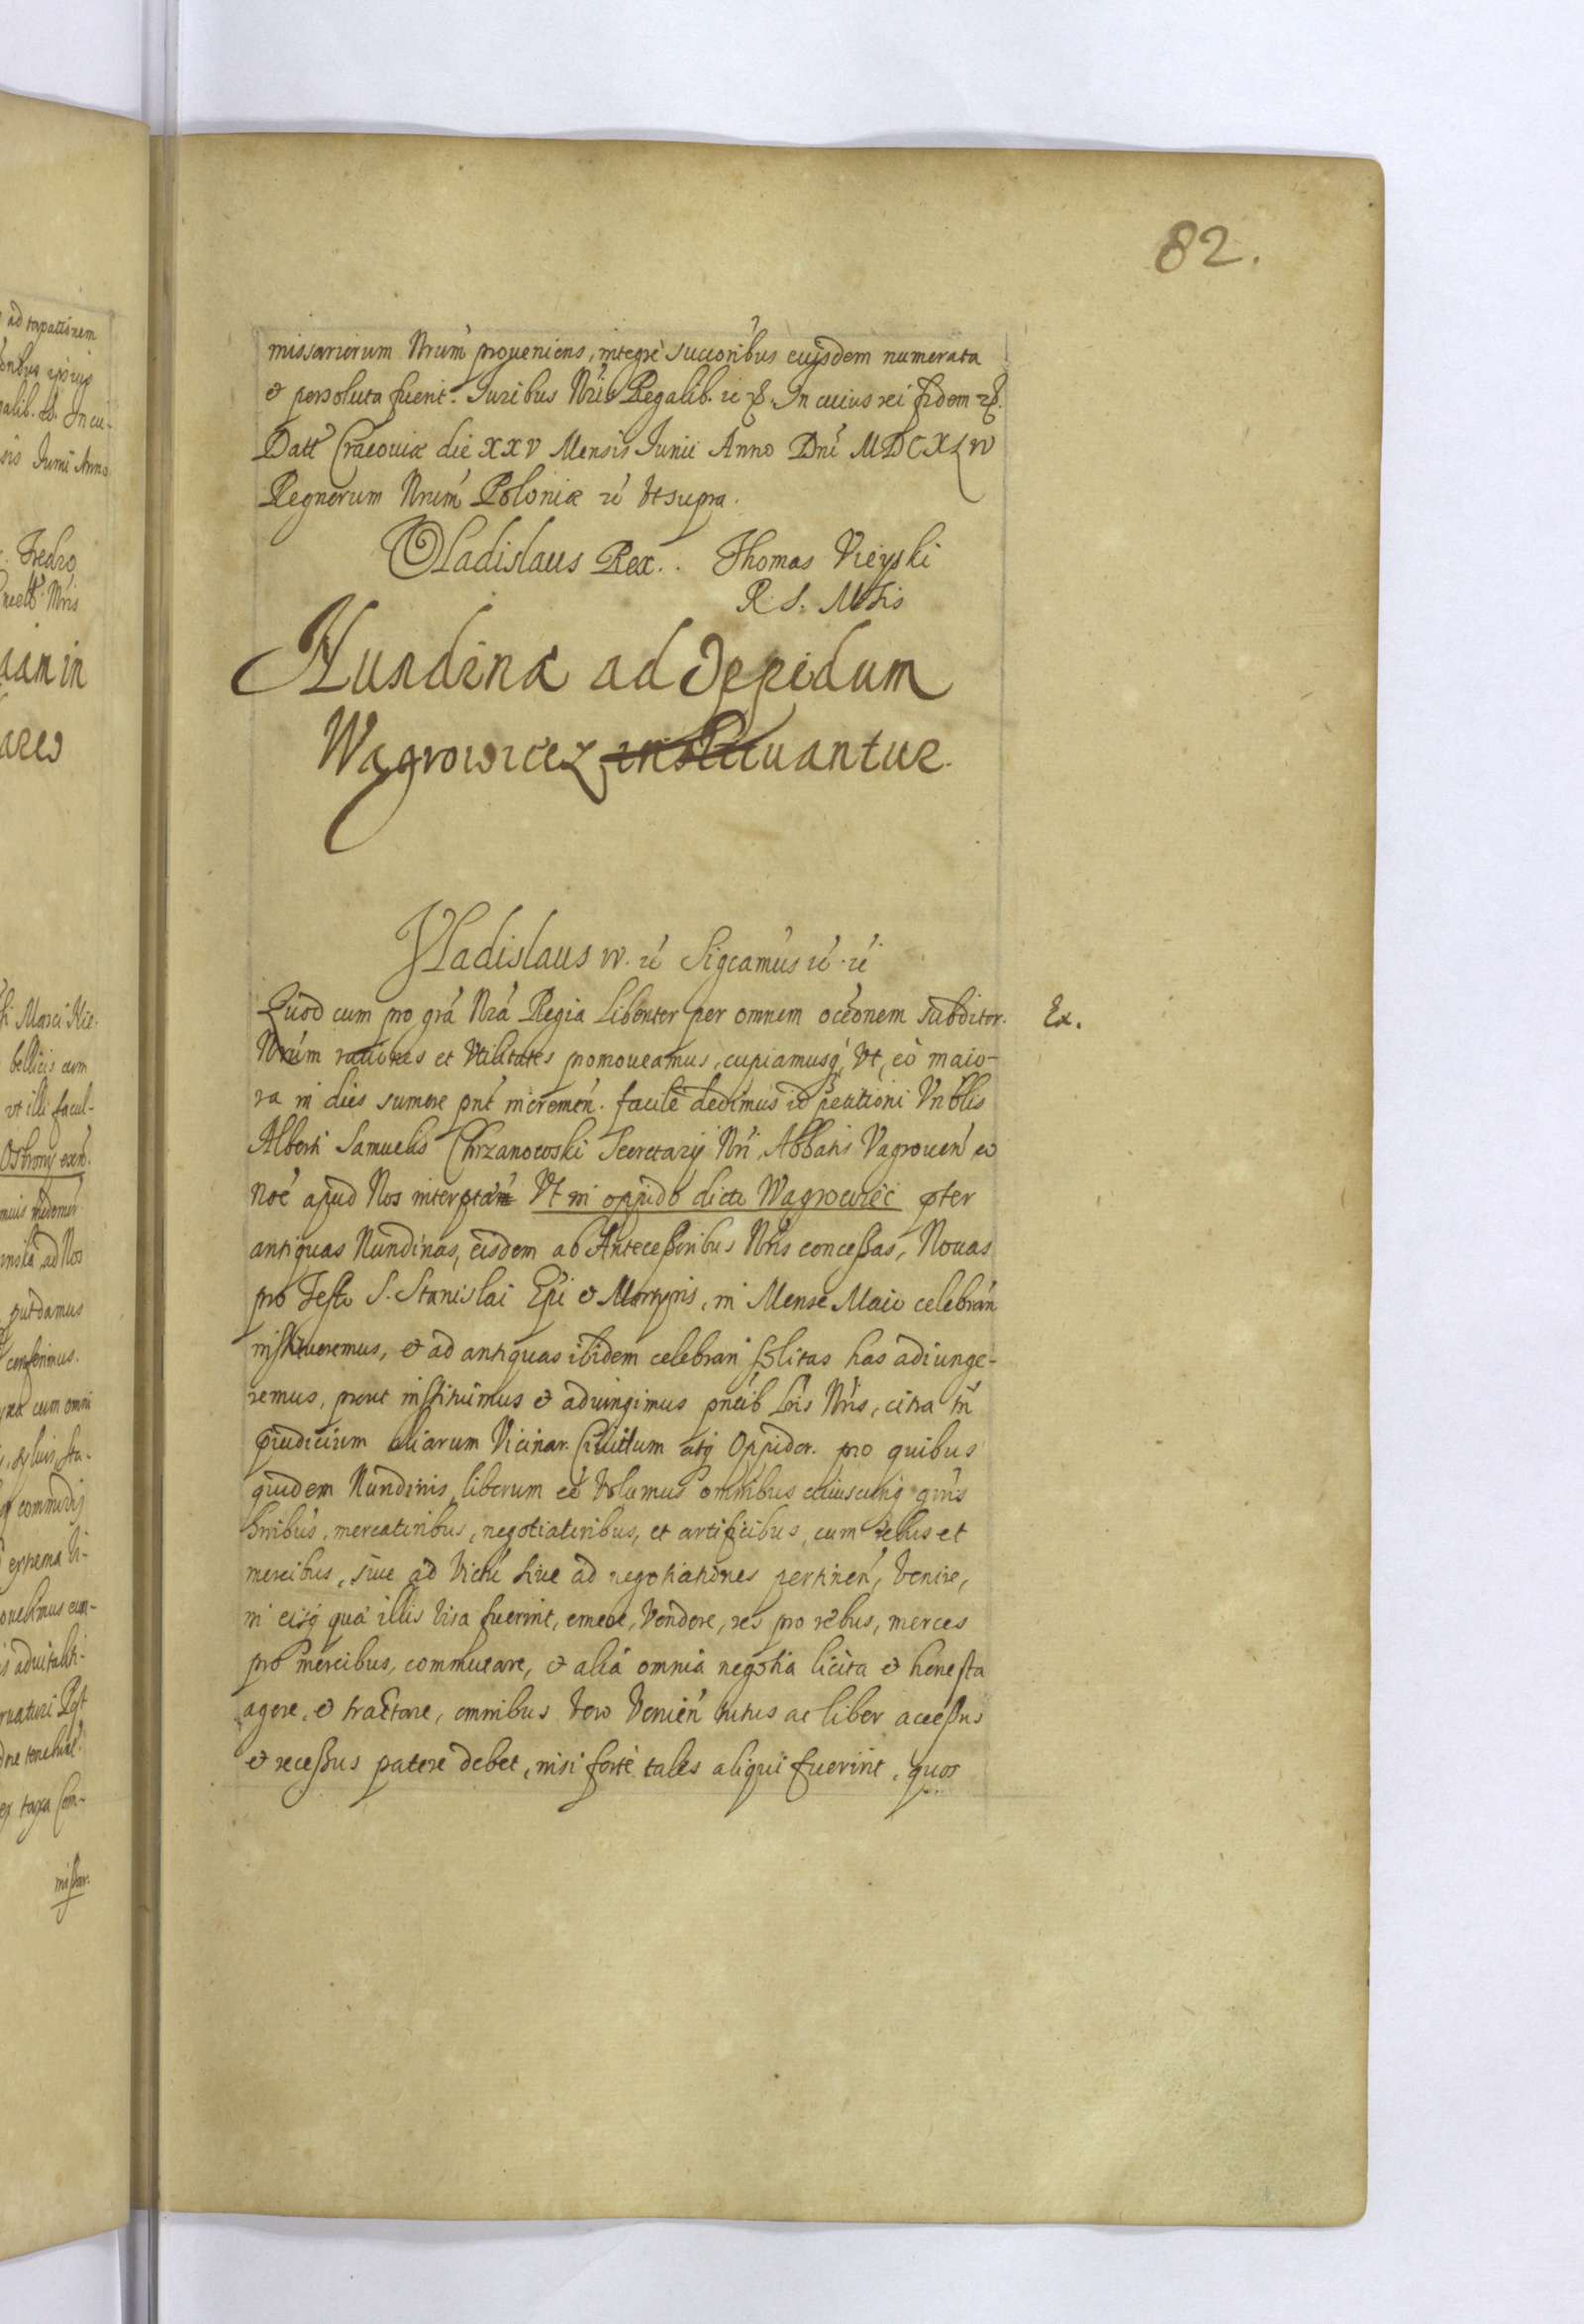 82.
missariorum Nrum proveniens, integrè succoribus eiusdem numerata
et persoluta fuerit. Iuribus Nris Regalib. ić In cuius rei fidem
Datt Cracoviæ die XXV Mensis Junii Anno Dni MDCXLIV
Regnorum Nrum Poloniæ ić Vt supra.
Vladislaus Rex. Thomas Vieyski
R. S. Mtis
Nundinæ ad Oppidum
Wągrowiecz instituantur.
Vladislaus IV. ić Sigcamus ić ić
Quod cum pro grá Nrá Regia Libenter per omnem occónem subditor. Ex.
Nrúm rationes et Vtilitates promoveamus, cupiamusq́, Vt, eò maio-
ra in dies sumere pnt incremen. facilè dedimus id petitioni Vnblis
Alberti Samuelis Chrzanowski Secretarij Nri, Abbatis Vagrovien̄ eo
noé apud Nos Vt in oppido dicto Wągrowiec pter
antiquas Nundinas, eisdem ab Antecessoribus Nris concessas, Novas
pro Festo S. Stanislai Epi et Martyris, in Mense Maio celebran
institueremus, et ad antiquas ibidem celebrari solitas has adiunge-
remus, prout instituimus et adiungimus pntib Lris Nris, citra tn̄
piudicium aliarum Vicinar. Civittum atq́ Oppidor. pro quibus
quidem Nundinis, liberum eé Volumus omnibus cuiuscunq́ gnis
hnibus, mercatoribus, negotiatoribus, et artificibus, cum rebus et
mercibus, sive ad Victú sive ad negotiationes pertinen̄, Venire,
in eisq́ quá illis Visa fuerint, emere, Vendere, res pro rebus, merces
pro mercibus, commutare, et aliá omnia negotia licita et honesta
agere, et tractare, omnibus Vero Venien̄ tutus ac liber accessus
et recessus patere debet, nisi fortè tales aliqui fuerint, quos